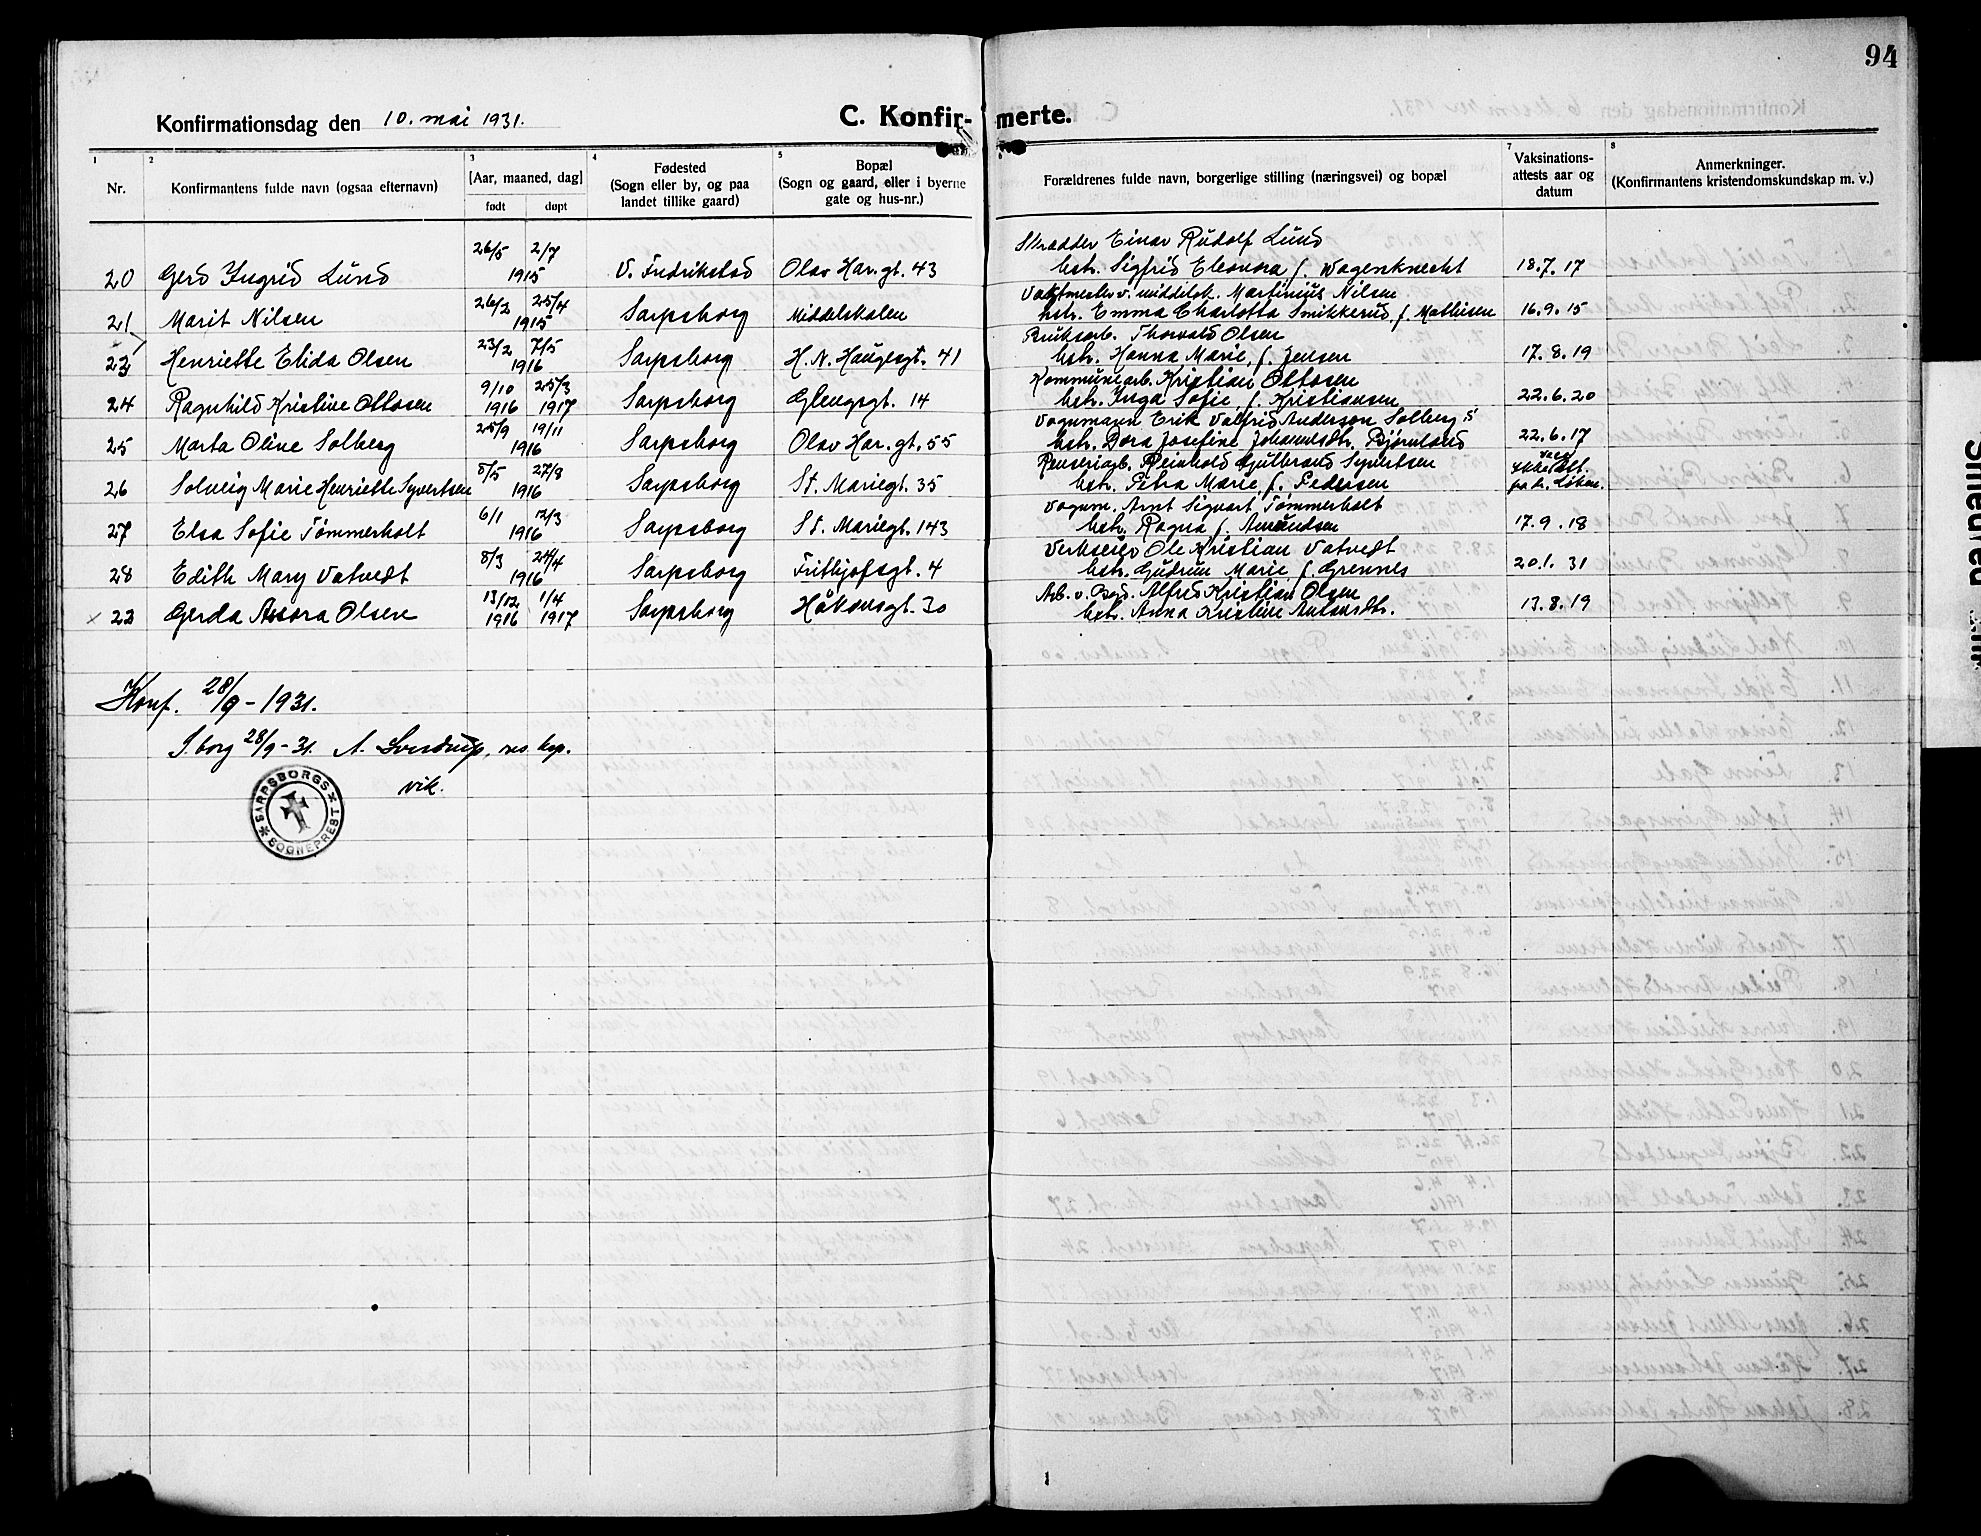 94
Konfirmationsdag den 10. mai 1931.
C. Konfirmerte.
1 2 3 4 5 7 8
Nr.
Konfirmantens fulde navn (ogsaa efternavn)
[Aar, maaned, dag]
født døpt
Fødested
(Sogn eller by, og paa
landet tillike gaard)
Bopæl
(Sogn og gaard, eller i byerne
gate og hus-nr.)
Forældrenes fulde navn, borgerlige stilling (næringsvei) og bopæl
Vaksinations-
attests aar og
datum
Anmerkninger.
(Konfirmantens kristendomskundskap m. v.)
26/5 2/7 Skrædder Einar Rudolf Lund
20 Gerd Yngrid Lund 1915 V. Fredrikstad Olav Har. gt. 43 hstr. Sigfrid Eleonora f. Wagenknecht 18.7.17
26/2 25/4 Vaktmester v. middelsk. Martinius Nilsen
21 Marit Nilsen 1915 Sarpsborg Middelskolen hstr. Emma Charlotta Smikkerud f. Mathisen 16.9.15
23/2 7/5 Bruksarb. Thorvald Olsen
23 Henriette Elida Olsen 1916 Sarpsborg H. N. Haugesgt. 41 hstr. Hanna Marie, f. Jensen 17.8.19
9/10 25/3 Kommunearb. Kristian Ottosen
24 Ragnhild Kristine Ottosen 1916 1917 Sarpsborg Glengsgt. 14 hstr. Inga Sofie f. Kristiansen 22.6.20
25/9 19/11 Vognmann Erik Valfrid Anderson Solberg
25 Marta Oline Solberg 1916 Sarpsborg Olav Har. gt. 55 hstr. Dora Josefine Johannesdtr. Bjørnland 22.6.17
8/5 27/8 Renseriarb. Reinhold Gulbrand Syvertsen
26 Solveig Marie Henriette Syvertsen 1916 Sarpsborg St. Mariegt. 35 hstr. Petra Marie f. Pedersen
6/1 12/3 Vognm. Arnt Sigvart Tømmerholt
27 Elsa Sofie Tømmerholt 1916 Sarpsborg St. Mariegt. 143 hstr. Ragna f. Amundsen 17.9.18
8/3 24/4 Verkseier Ole Kristian Vatvedt
28 Edith Mary Vatvedt 1916 Sarpsborg Frithjofsgt. 4 hstr. Gudrun Marie f. Grennes 20.1.31
13/12 1/4 Arb. v. Borg. Alfred Kristian Olsen
× 22 Gerda Assora Olsen 1916 1917 Sarpsborg Håkonsgt. 30 hstr. Anna Kristine Antonsdtr. 13.8.19
Konf. 28/9 - 1931.
S.borg 28/9 - 31. A. Sverdrup, res. kap.
vik.
SARPSBORGS SOGNEPREST